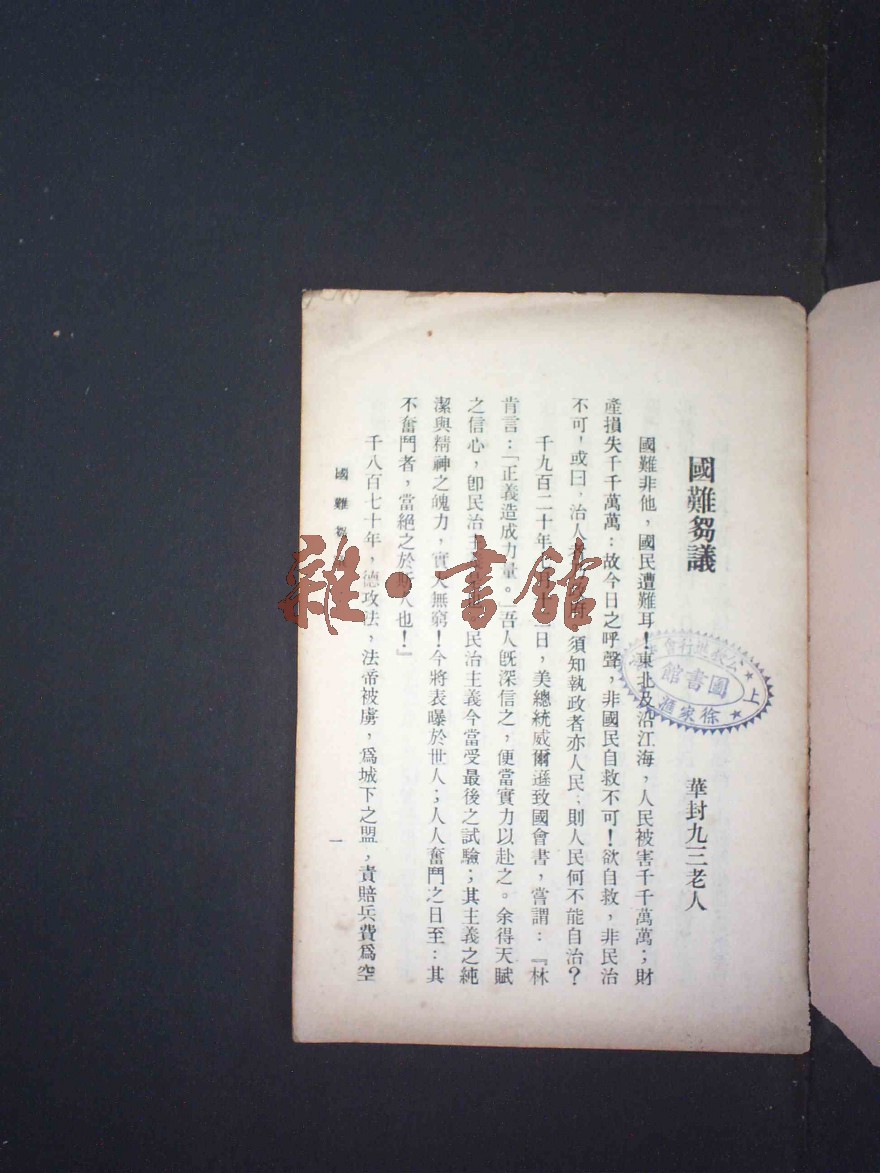 國難芻議
華封九三老人
國難非他，國民遭難耳！東北及沿江海，人民被害千千萬萬；財
產損失千千萬萬：故今日之呼聲，非國民自救不可！欲自救，非民治
不可，或曰，治人者政府，須知執政者亦人民；則人民何不能自治？
千九百二十年 日，美總統威爾遜致國會書，嘗謂：『林
肯言：「正義造成力量。」吾人既深信之，便當實力以赴之。余得天賦
之信心，卽民治主 民治主義今當受最後之試驗；其主義之純
潔與精神之魄力，實大無窮！今將表曝於世人；人人奮鬥之日至：其
不奮鬥者，當絕之於斯人也！』
千八百七十年，德攻法，法帝被虜，爲城下之盟，責賠兵費爲空
國難芻議
一
上 徐家滙
圖書館
雜·書館